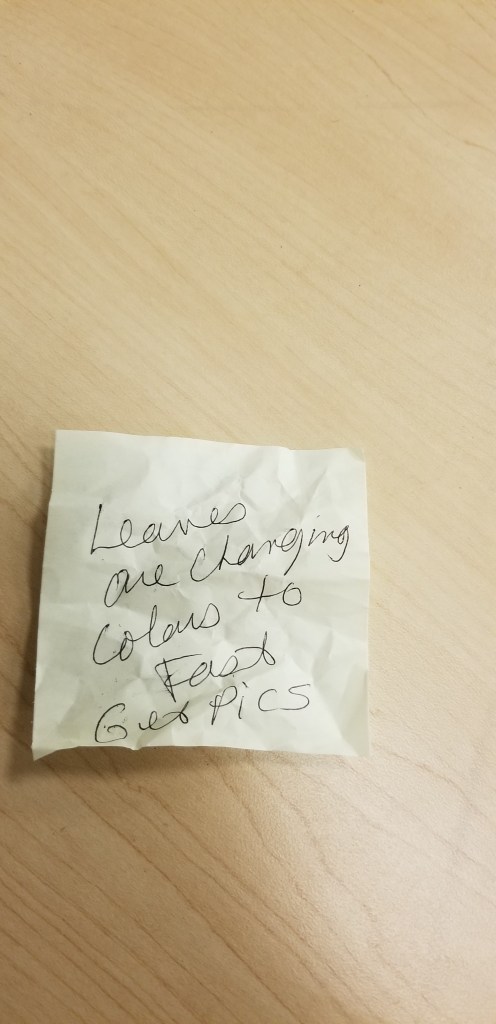 Leaves
are changing
Colors to
Fast
Get Pics